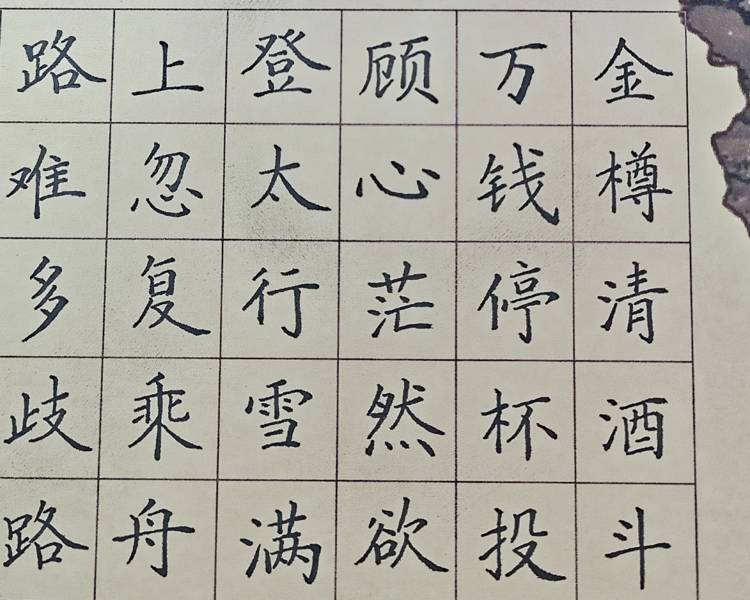 金樽清酒斗
万钱停杯投
顾心茫然欲
登太行雪满
上忽复乘舟
路难多歧路